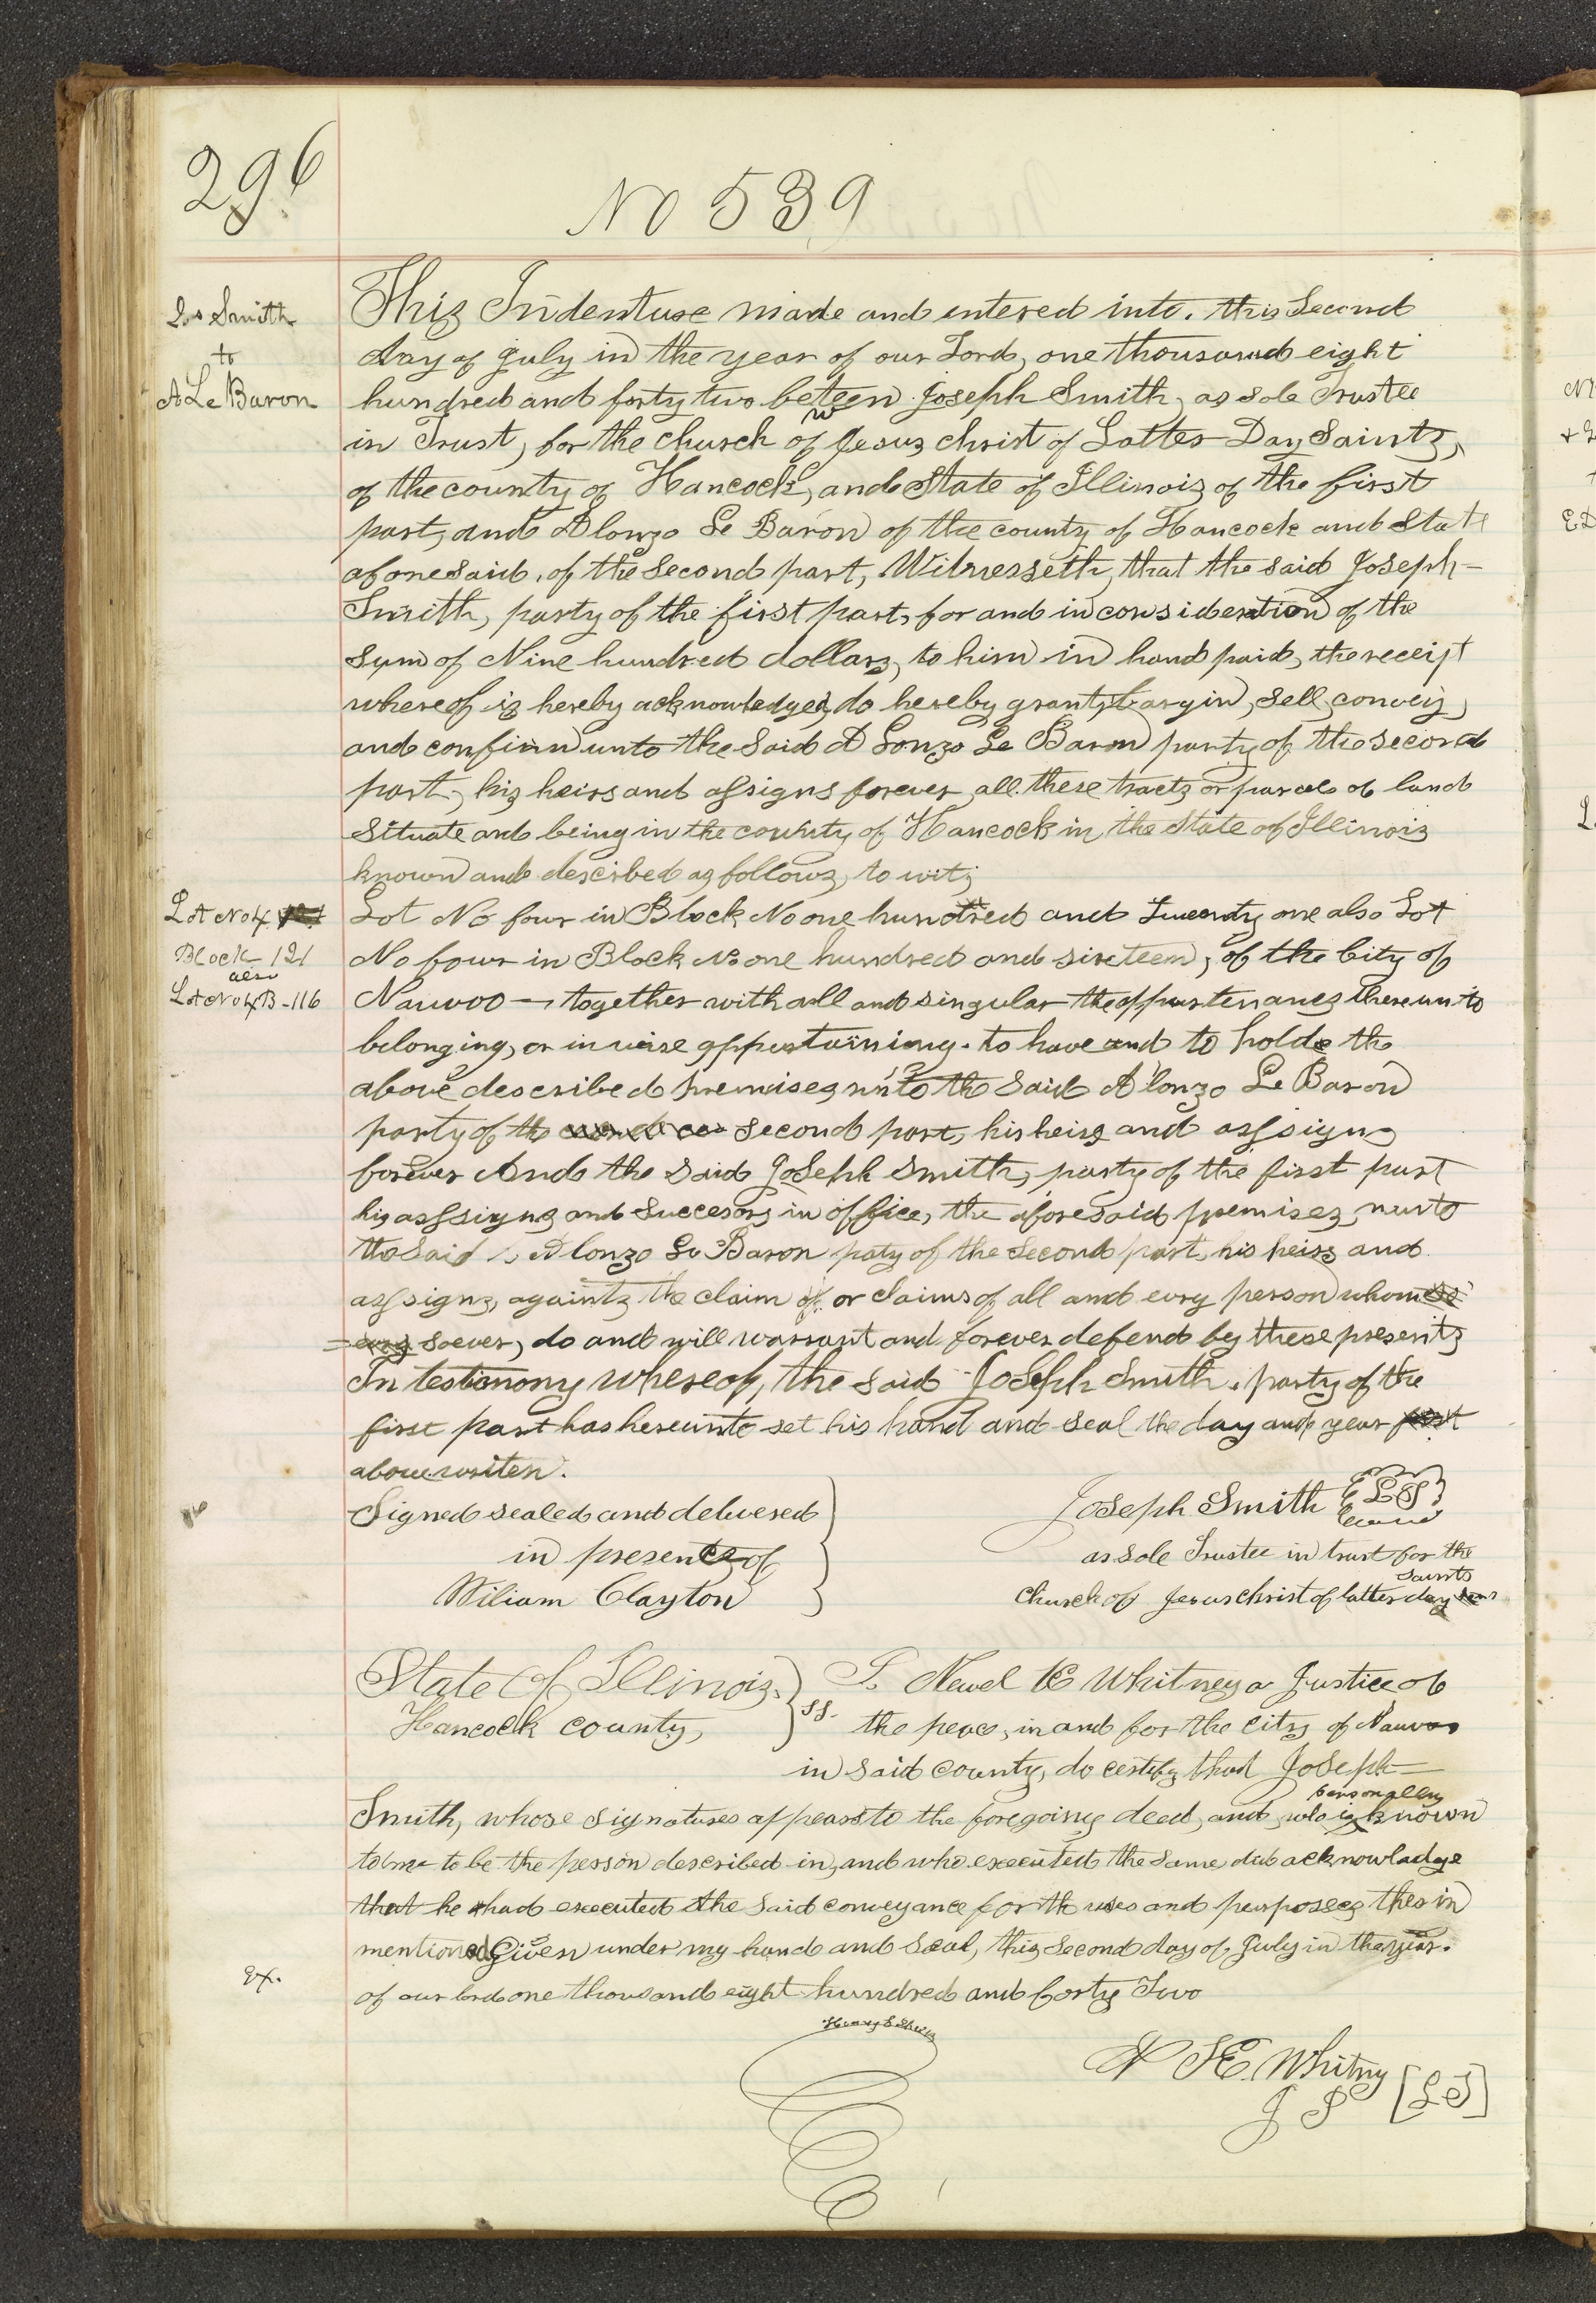 296
No 539
Jos Smith
to
A Le Baron
This Indenture made and entered into. this Second
day of July in the year of our Lord, one thousand eight
hundred and forty two beteen Joseph Smith, as sole Trustee
w
in Trust, for the church of Jesus christ of Latter Day Saints,
of the county of Hancock, and State of Illinois of the first
part, and Alonzo Le Baron of the county of Hancock and State
aforesaid, of the Second part, Witnesseth, that the said Joseph-
Smith, party of the first part, for and in consideration of the
sum of Nine hundred dollars, to him in hand paid, the receipt
whereof is hereby acknowledged, do hereby grant, bargin, sell, convey,
and confirm unto the Said A Lonzo Le Baron party of the second
part, his heirs and assigns forever, all these tracts or parcels of land
Situate and being in the county of Hancock in the State of Illinois
known and described as follows, to wit;
Lot No 4
Block 121
also
Lot No 4 B-116
Lot No four in Block No one hundred and Twenty one also Lot
No four in Block No one hundred and sixteen, of the City of
Nauvoo — together with all and singular the appurtenances thereunto
belonging, or in wise appertaining. to have and to hold the
above described premises unto the Said Alonzo Le Baron
party of the second part, his heirs and assigns
forever And the Said Joseph Smith, party of the first part
his assigns and Successors in office, the aforesaid premises, unto
the Said Alonzo Le Baron paty of the Second part, his heirs and
assigns, againts the claim of or claims of all and every person whom
soever, do and will warrant and forever defend by these presents
In testimony whereof, the said Joseph Smith, party of the
first part has hereunto set his hand and seal the day and year first
above writen.
Signed sealed and delivered
in presents of
Wiliam Clayton
Joseph Smith {LS}
as sole Trustee in trust for the
Saints
Church of Jesus christ of latter day
State Of Illinois, } ss.
Hancock county,
I. Newel K Whitney a Justice of
the peace, in and for the City of Nauvoo
in said county, do certify that Joseph—
personally
Smith, whose signatures appears to the foregoing deed, and who is known
to me to be the person described in, and who executed the same did acknowladge
that he had executed the said conveyance for the uses and purposes therin
mentioned Given under my hand and seal, this second day of July in the year.
ex.
of our lord one thousand eight hundred and forty Two
N K. Whitny
J P [LS]